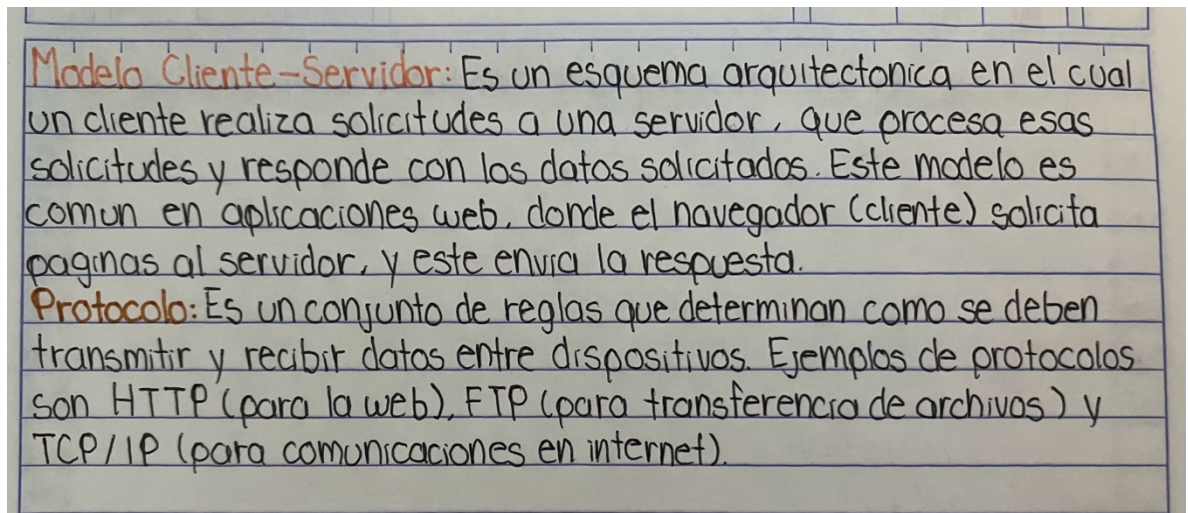 Modelo Cliente-Servidor: Es un esquema arquitectonica en el cual
un cliente realiza solicitudes a una servidor, que procesa esas
solicitudes y responde con los datos solicitados. Este modelo es
comun en aplicaciones web, donde el navegador (cliente) solicita
paginas al servidor, y este envia la respuesta.
Protocolo: Es un conjunto de reglas que determinan como se deben
transmitir y recibir datos entre dispositivos. Ejemplos de protocolos
son HTTP (para la web), FTP (para transferencia de archivos) y
TCP/IP (para comunicaciones en internet).